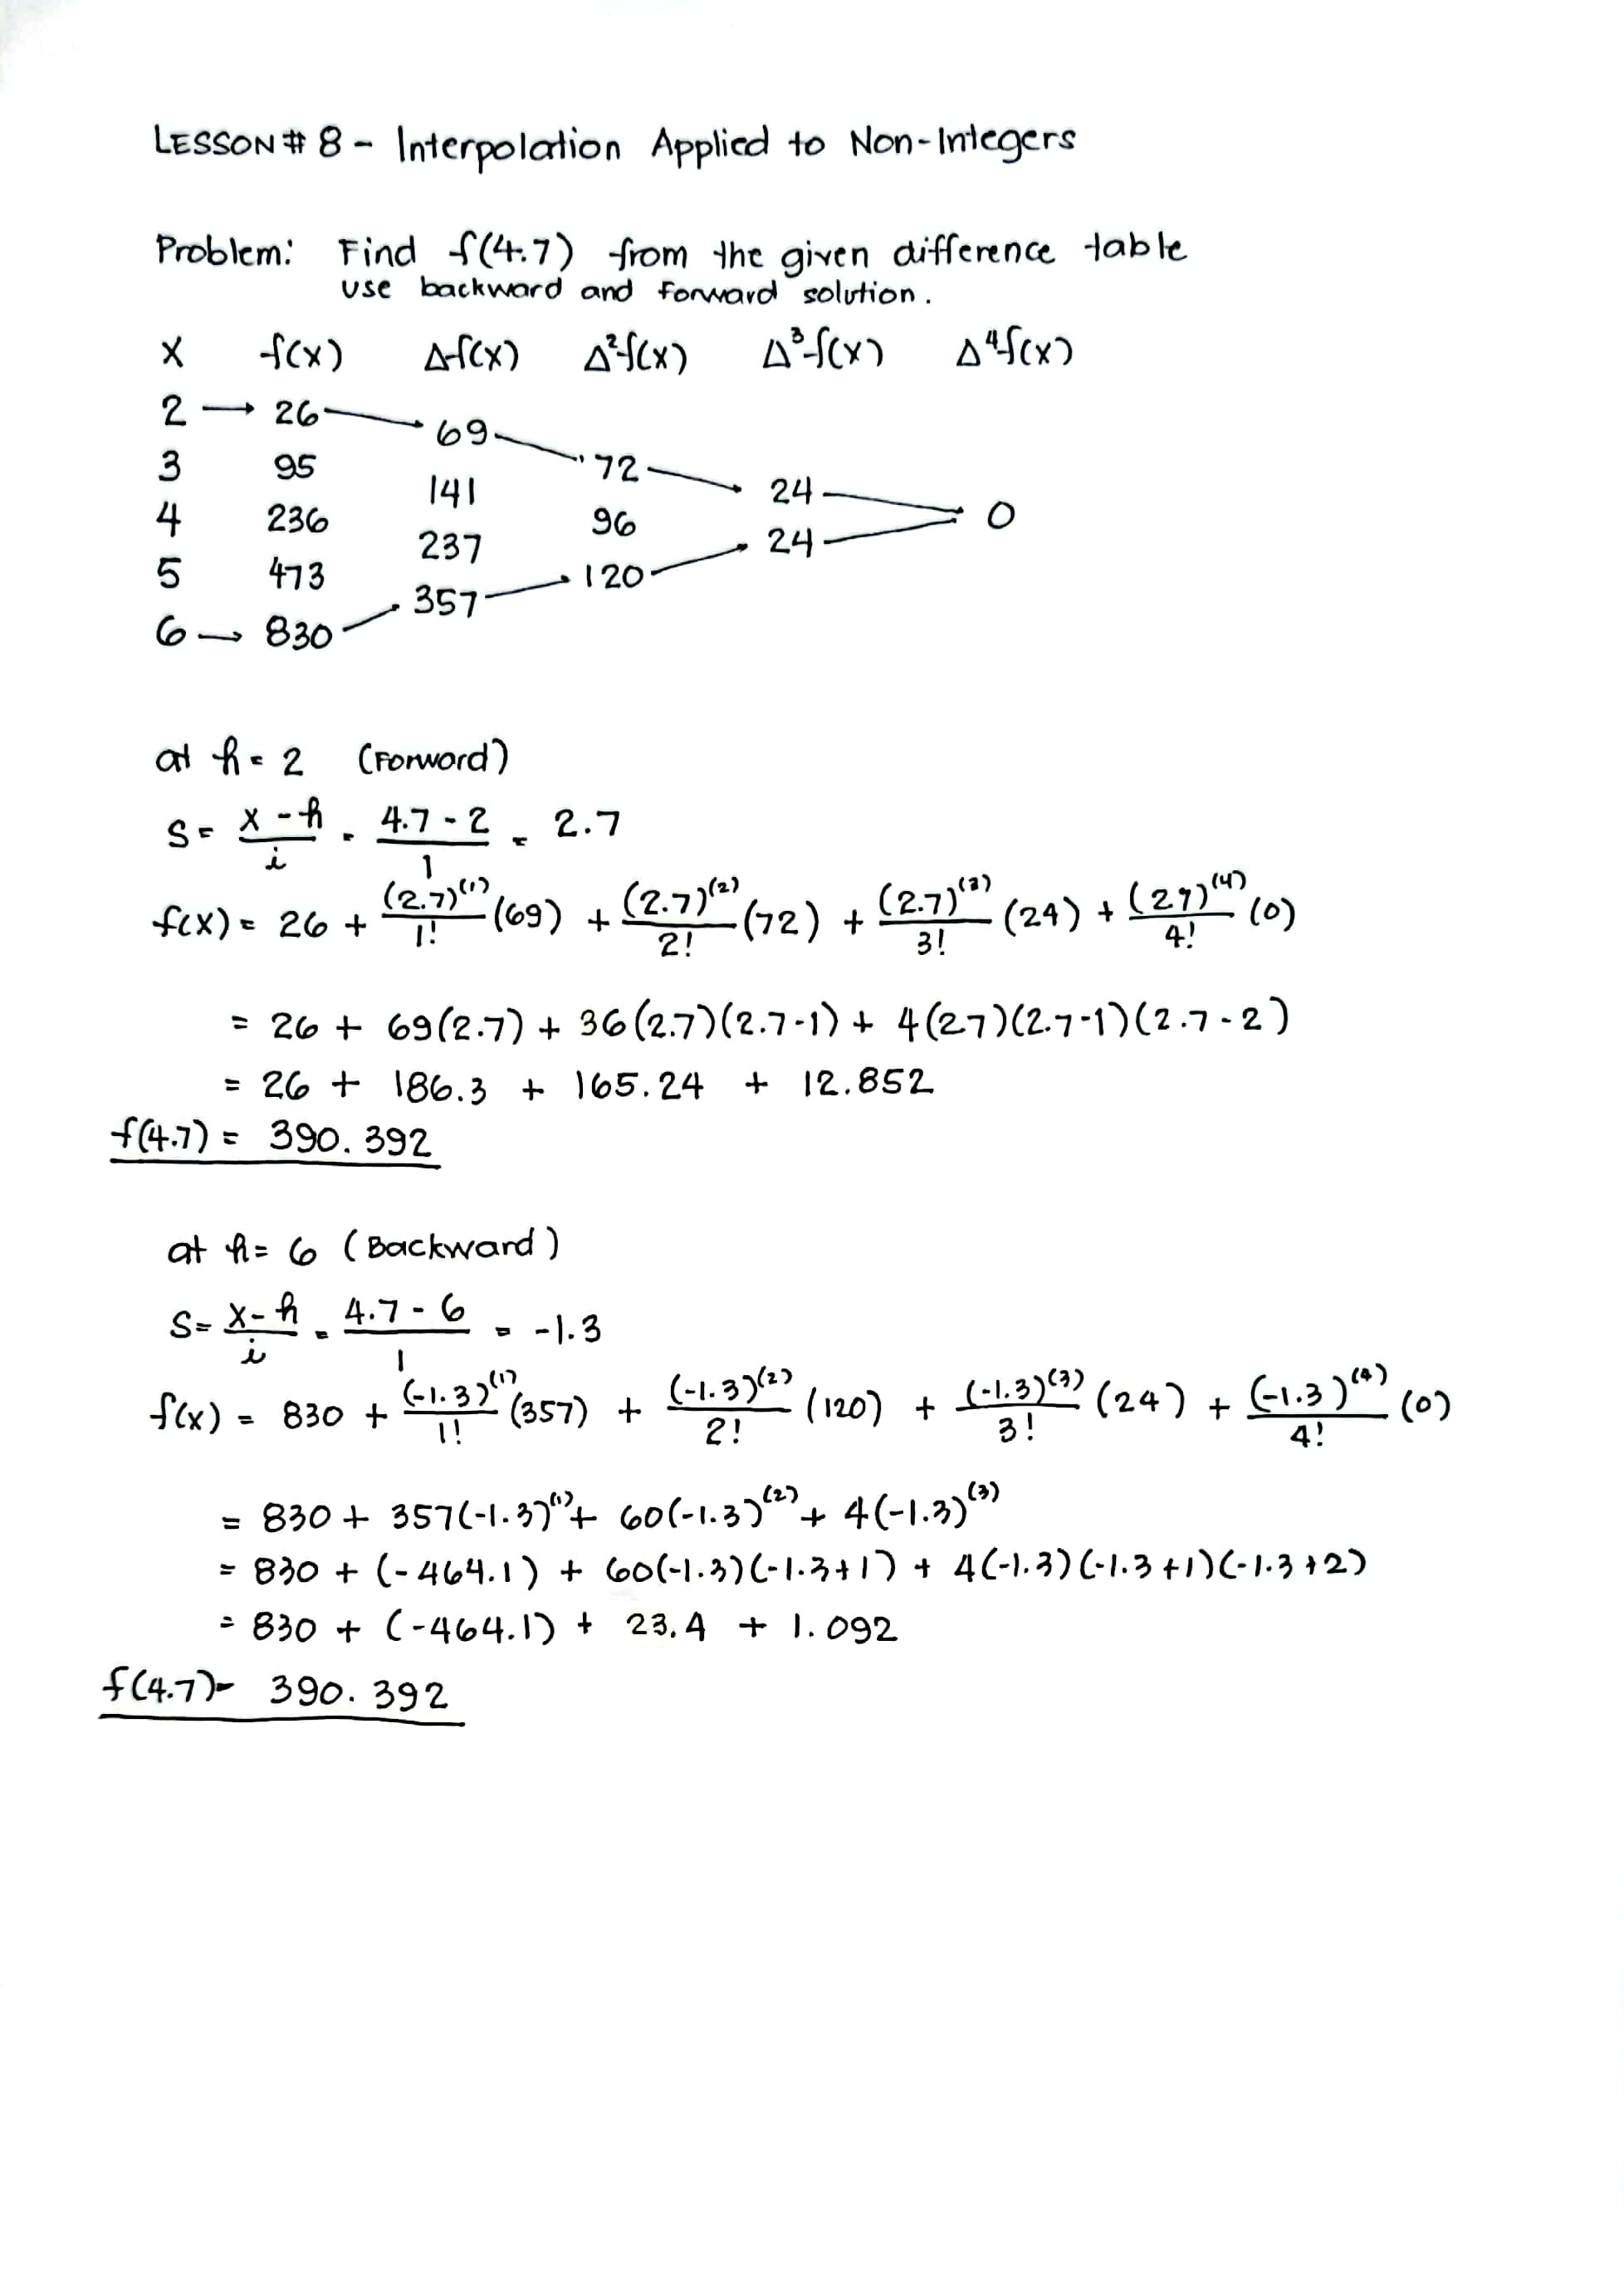 LESSON# 8 - Interpolation Applied to Non-Integers
Problem: Find f(4.7) from the given difference table
use backward and forward solution.
X f(x) Δf(x) Δ²f(x) Δ³f(x) Δ⁴f(x)
2 → 26 → 69 → 72 → 24 → 0
3 95 141 96 24
4 236 237 120
5 473 357
6 → 830
at h = 2 (Forward)
S = x - h / i = 4.7 - 2 / 1 = 2.7
f(x) = 26 + (2.7)⁽¹⁾/1! (69) + (2.7)⁽²⁾/2! (72) + (2.7)⁽³⁾/3! (24) + (2.7)⁽⁴⁾/4! (0)
= 26 + 69(2.7) + 36(2.7)(2.7-1) + 4(2.7)(2.7-1)(2.7-2)
= 26 + 186.3 + 165.24 + 12.852
f(4.7) = 390.392
at h = 6 (Backward)
S = x - h / i = 4.7 - 6 / 1 = -1.3
f(x) = 830 + (-1.3)⁽¹⁾/1! (357) + (-1.3)⁽²⁾/2! (120) + (-1.3)⁽³⁾/3! (24) + (-1.3)⁽⁴⁾/4! (0)
= 830 + 357(-1.3)⁽¹⁾ + 60(-1.3)⁽²⁾ + 4(-1.3)⁽³⁾
= 830 + (-464.1) + 60(-1.3)(-1.3+1) + 4(-1.3)(-1.3+1)(-1.3+2)
= 830 + (-464.1) + 23.4 + 1.092
f(4.7) = 390.392